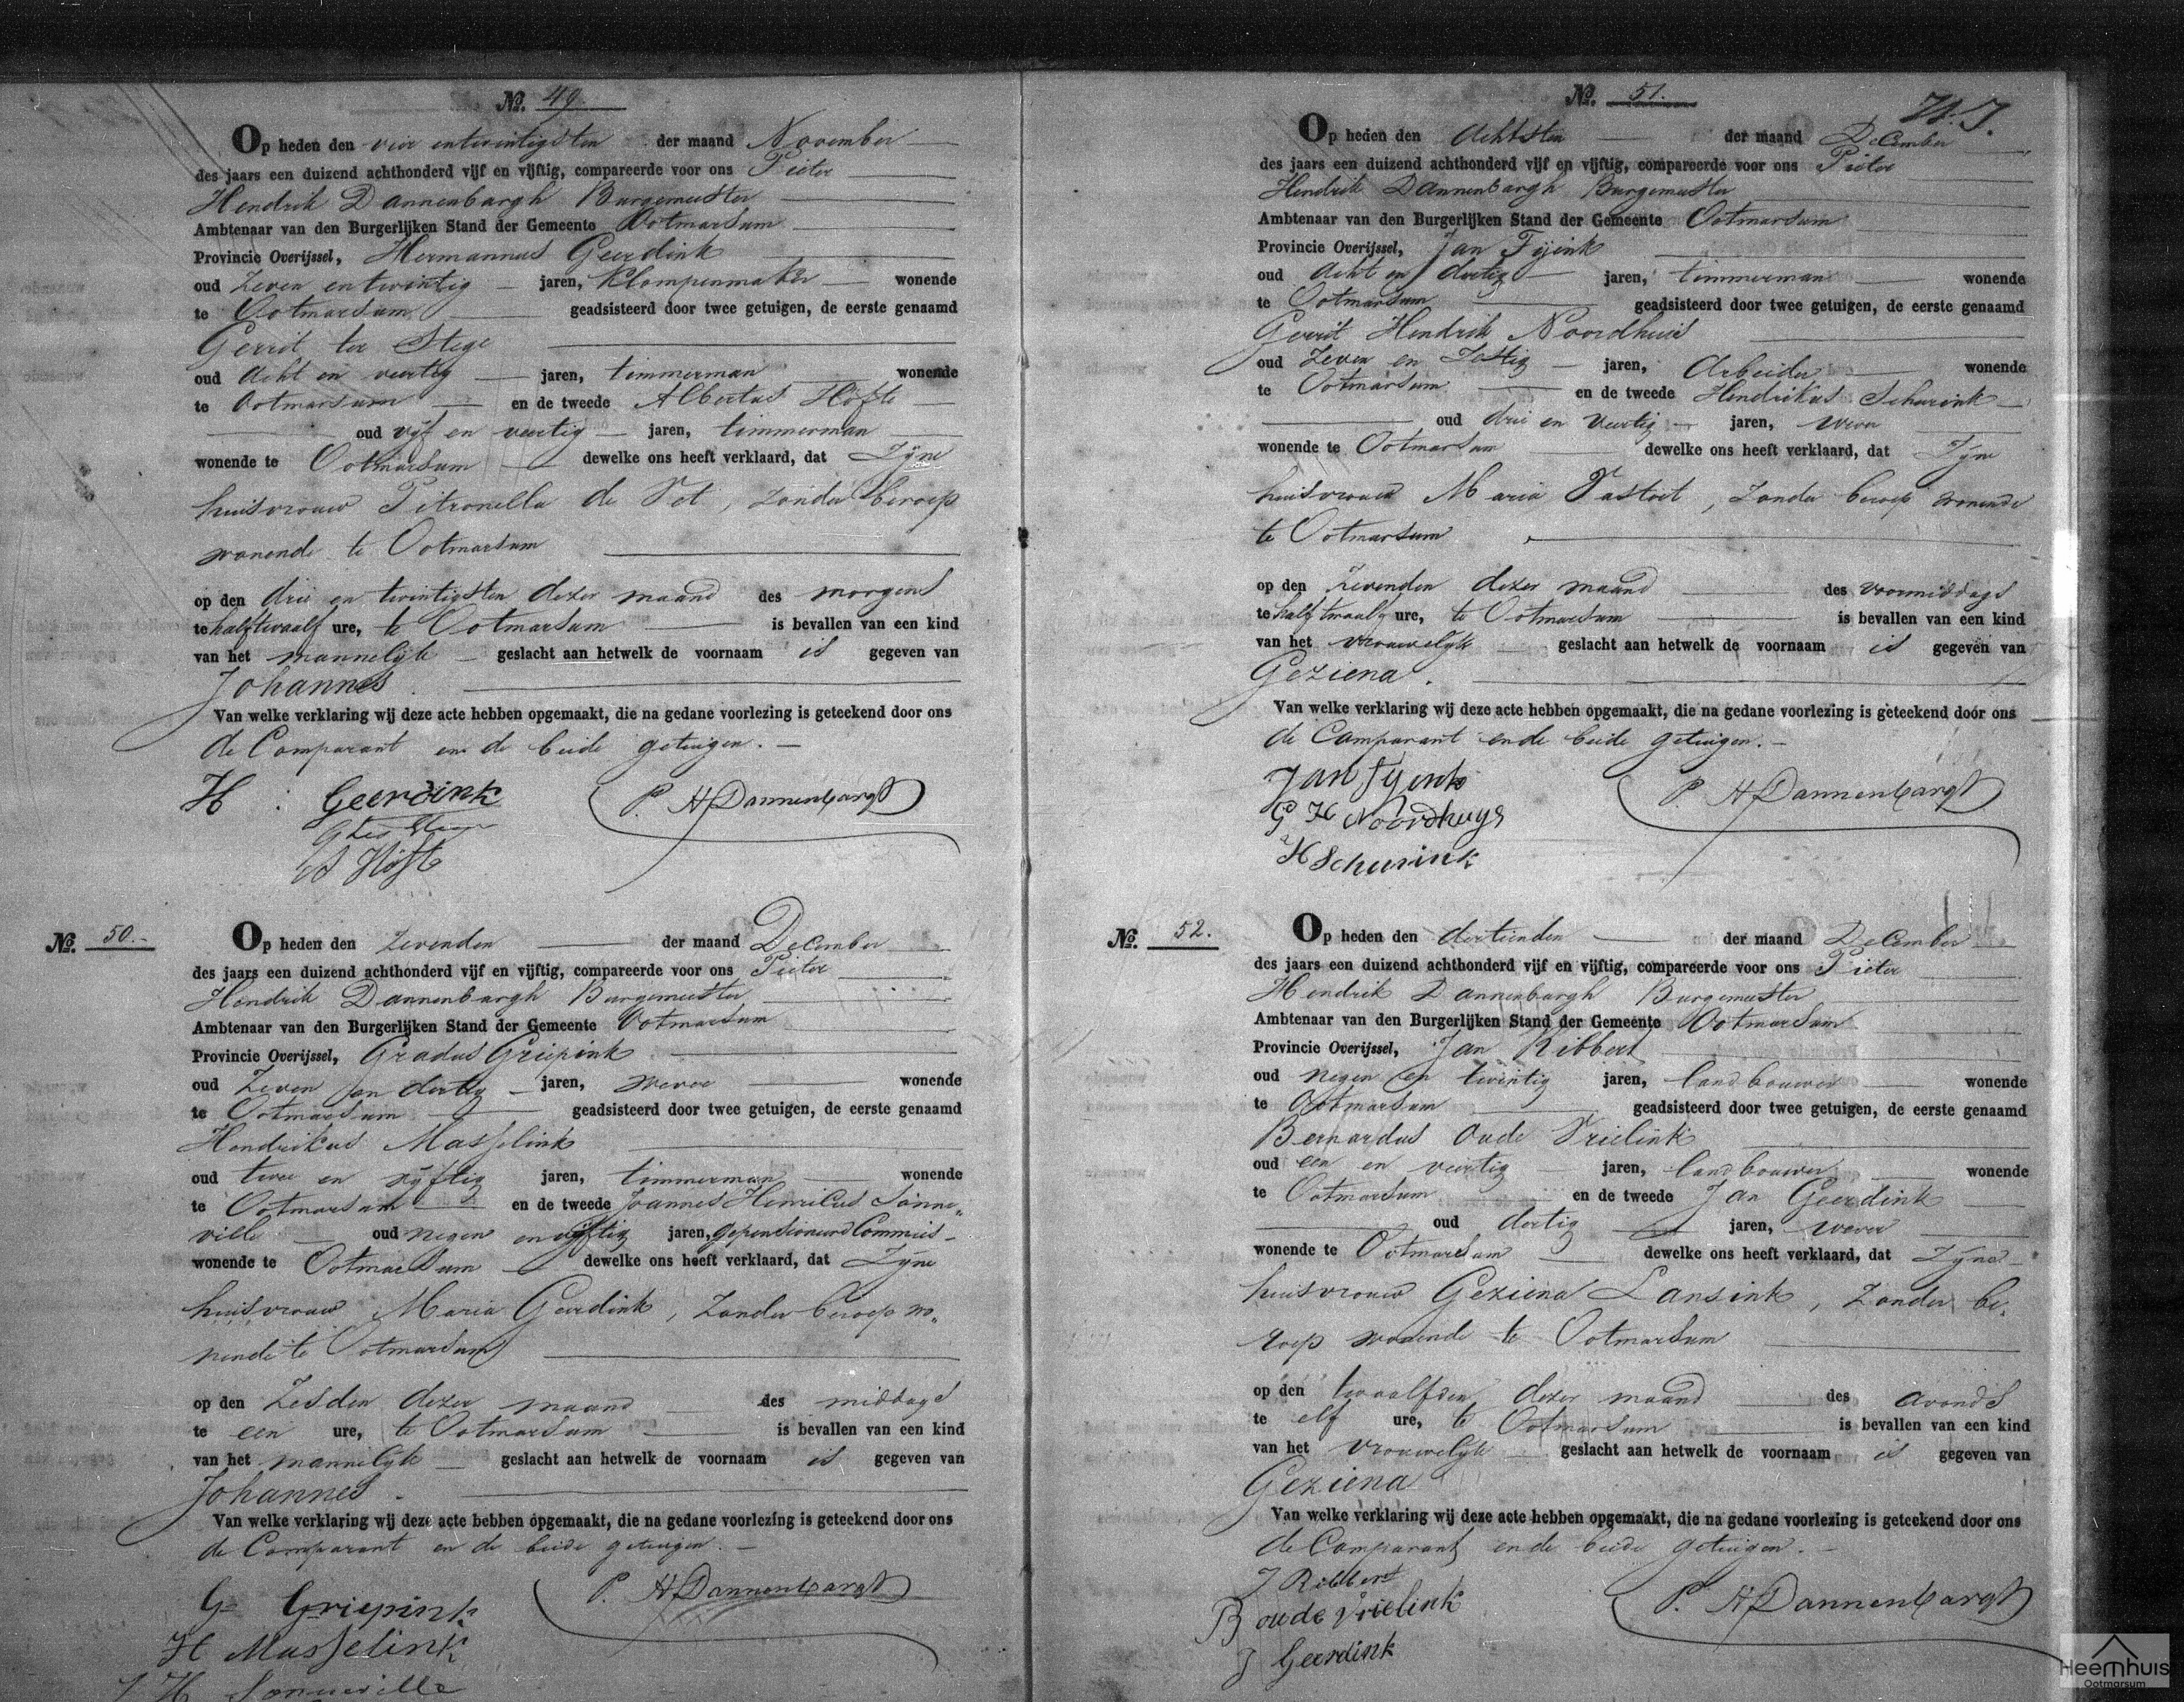 No. 49.
Op heden den vier entwintigsten der maand November
des jaars een duizend achthonderd vijf en vijftig, compareerde voor ons Pieter
Hendrik Dannenbargh Burgemeester
Ambtenaar van den Burgerlijken Stand der Gemeente Ootmarsum
Provincie Overijssel, Hermannus Geerdink
oud Zeven en twintig jaren, Klompenmaker wonende
te Ootmarsum geadsisteerd door twee getuigen, de eerste genaamd
Gerrit ter Stege
oud acht en veertig jaren, timmerman wonende
te Ootmarsum en de tweede Albertus Höfte
oud vijf en veertig jaren, timmerman
wonende te Ootmarsum dewelke ons heeft verklaard, dat Zijne
huisvrouw Petronella de Vet, zonder beroep
wonende te Ootmarsum
op den drie en twintigsten dezer maand des morgens
te half twaalf ure, te Ootmarsum is bevallen van een kind
van het mannelijk geslacht aan hetwelk de voornaam is gegeven van
Johannes.
Van welke verklaring wij deze acte hebben opgemaakt, die na gedane voorlezing is geteekend door ons
de Comparant en de beide getuigen.
H: Geerdink P. H Dannenbargh
G ter Stege
A Höft
No. 50.
Op heden den Zevenden der maand December
des jaars een duizend achthonderd vijf en vijftig, compareerde voor ons Pieter
Hendrik Dannenbargh Burgemeester
Ambtenaar van den Burgerlijken Stand der Gemeente Ootmarsum
Provincie Overijssel, Gradus Griepink
oud Zeven en dertig jaren, wever wonende
te Ootmarsum geadsisteerd door twee getuigen, de eerste genaamd
Hendrikus Masselink
oud twee en vijftig jaren, timmerman wonende
te Ootmarsum en de tweede Joannes Henricus Sonne„
ville oud negen en vijftig jaren, gepensioneerd Commies
wonende te Ootmarsum dewelke ons heeft verklaard, dat Zijne
huisvrouw Maria Geerdink, zonder beroep wo„
nende te Ootmarsum
op den Zesden dezer maand des middags
te een ure, te Ootmarsum is bevallen van een kind
van het mannelijk geslacht aan hetwelk de voornaam is gegeven van
Johannes.
Van welke verklaring wij deze acte hebben opgemaakt, die na gedane voorlezing is geteekend door ons
de Comparant en de beide getuigen.
G= Griepink P. H Dannenbargh
H Masselink
J H Sonneville
No. 51.
Op heden den Achtsten der maand December
des jaars een duizend achthonderd vijf en vijftig, compareerde voor ons Pieter
Hendrik Dannenbargh Burgemeester
Ambtenaar van den Burgerlijken Stand der Gemeente Ootmarsum
Provincie Overijssel, Jan Tijink
oud Acht en dertig jaren, timmerman wonende
te Ootmarsum geadsisteerd door twee getuigen, de eerste genaamd
Gerrit Hendrik Noordhuis
oud Zeven en Zestig jaren, Arbeider wonende
te Ootmarsum en de tweede Hendrikus Schurink
oud drie en Veertig jaren, wever
wonende te Ootmarsum dewelke ons heeft verklaard, dat Zijne
huisvrouw Maria Vastert, zonder beroep wonende
te Ootmarsum
op den Zevenden dezer maand des voormiddags
te half twaalf ure, te Ootmarsum is bevallen van een kind
van het vrouwelijk geslacht aan hetwelk de voornaam is gegeven van
Geziena.
Van welke verklaring wij deze acte hebben opgemaakt, die na gedane voorlezing is geteekend door ons
de Comparant en de beide getuigen.
Jan Tyenk P. H Dannenbargh
G H Noordhuys
H Schurink
No. 52.
Op heden den dertienden der maand December
des jaars een duizend achthonderd vijf en vijftig, compareerde voor ons Pieter
Hendrik Dannenbargh Burgemeester
Ambtenaar van den Burgerlijken Stand der Gemeente Ootmarsum
Provincie Overijssel, Jan Ribbert
oud negen en twintig jaren, landbouwer wonende
te Ootmarsum geadsisteerd door twee getuigen, de eerste genaamd
Bernardus oude Vrielink
oud een en veertig jaren, landbouwer wonende
te Ootmarsum en de tweede Jan Geerdink
oud dertig jaren, wever
wonende te Ootmarsum dewelke ons heeft verklaard, dat Zijne
huisvrouw Geziena Lansink, zonder be„
roep wonende te Ootmarsum
op den twaalfden dezer maand des avonds
te elf ure, te Ootmarsum is bevallen van een kind
van het vrouwelijk geslacht aan hetwelk de voornaam is gegeven van
Geziena
Van welke verklaring wij deze acte hebben opgemaakt, die na gedane voorlezing is geteekend door ons
de Comparant en de beide getuigen.
J Ribbert P. H Dannenbargh
B oude Vrielink
J Geerdink
Heemhuis
Ootmarsum